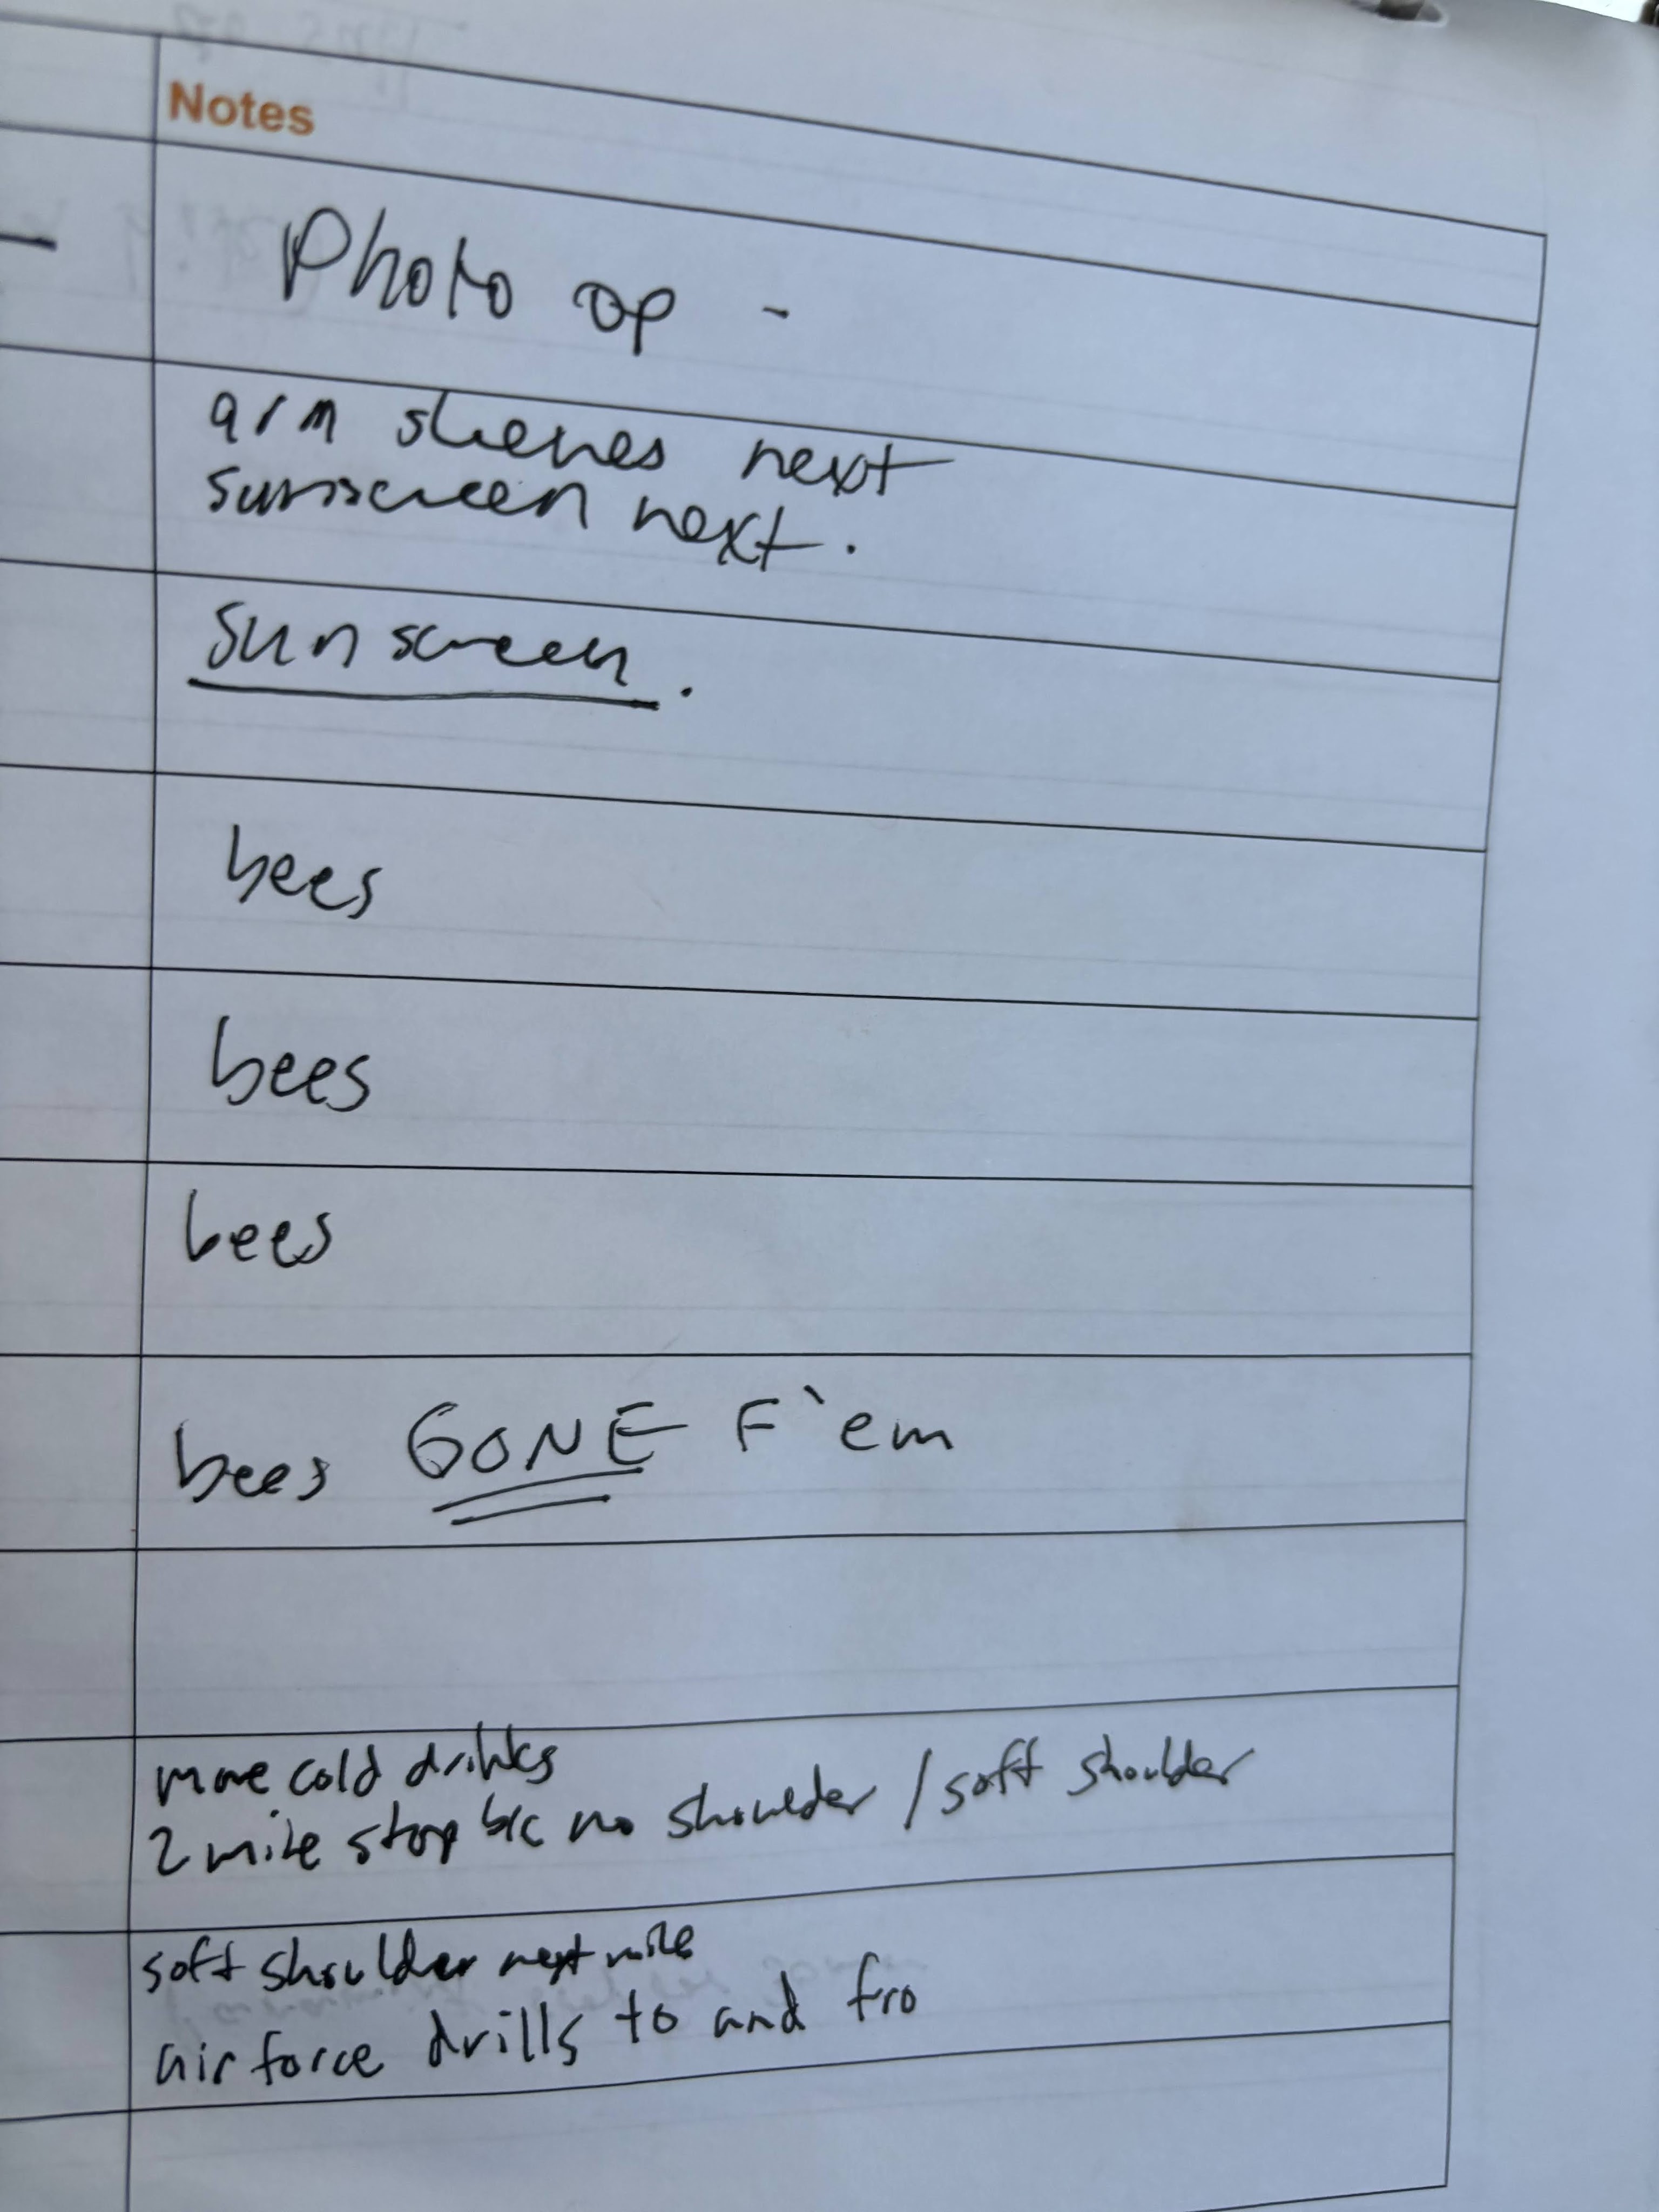 Notes
Photo op -
arm sleeves next
sunscreen next.
sunscreen.
bees
bees
bees
bees GONE F'em
more cold drinks
2 mile stop b/c no shoulder / soft shoulder
soft shoulder next mile
air force drills to and fro